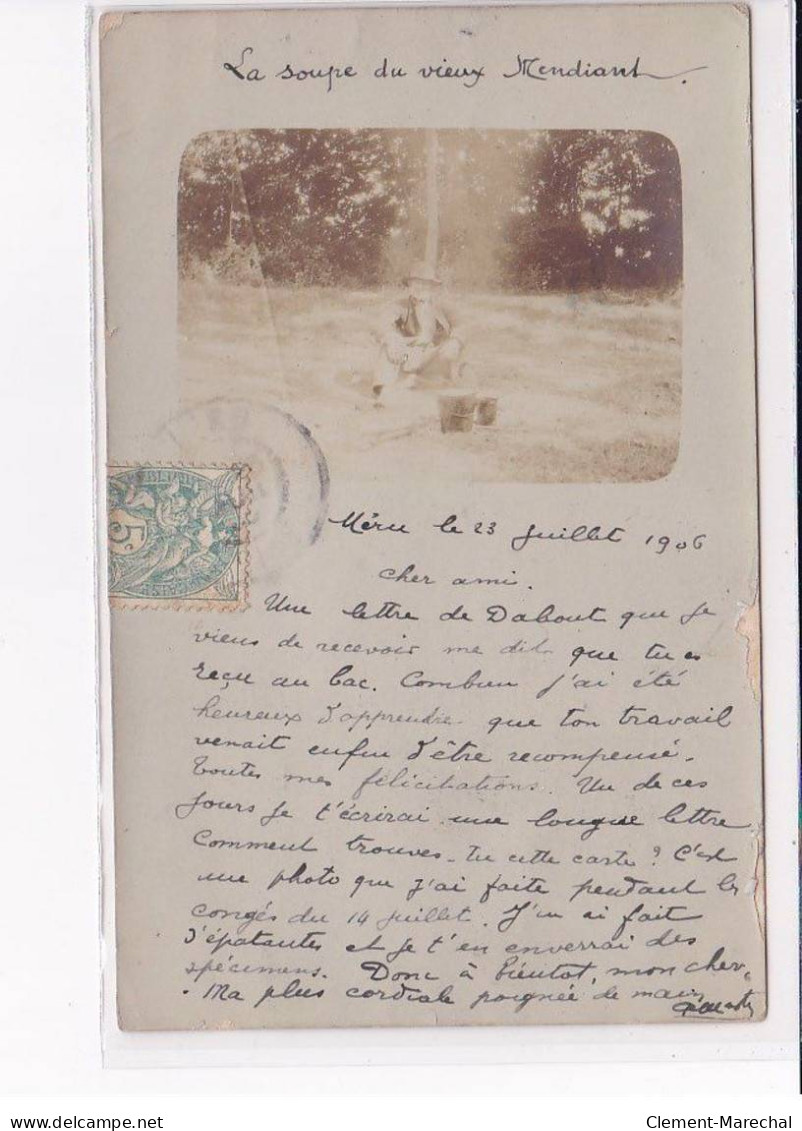 La soupe du vieux Mendiant.
5c
Méru le 23 Juillet 1906
cher ami.
Une lettre de Dabout que je
viens de recevoir me dit que tu es
reçu au bac. Combien j'ai été
heureux d'apprendre que ton travail
venait enfin d'être recompensé.
Toutes mes félicitations. Un de ces
jours je t'écrirai une longue lettre
Comment trouves-tu cette carte? C'est
une photo que j'ai faite pendant les
congés du 14 Juillet. J'en ai fait
d'épatantes et je t'en enverrai des
spécimens. Donc à bientot, mon cher,
Ma plus cordiale poignée de main
delcampe.net
Clement-Marechal